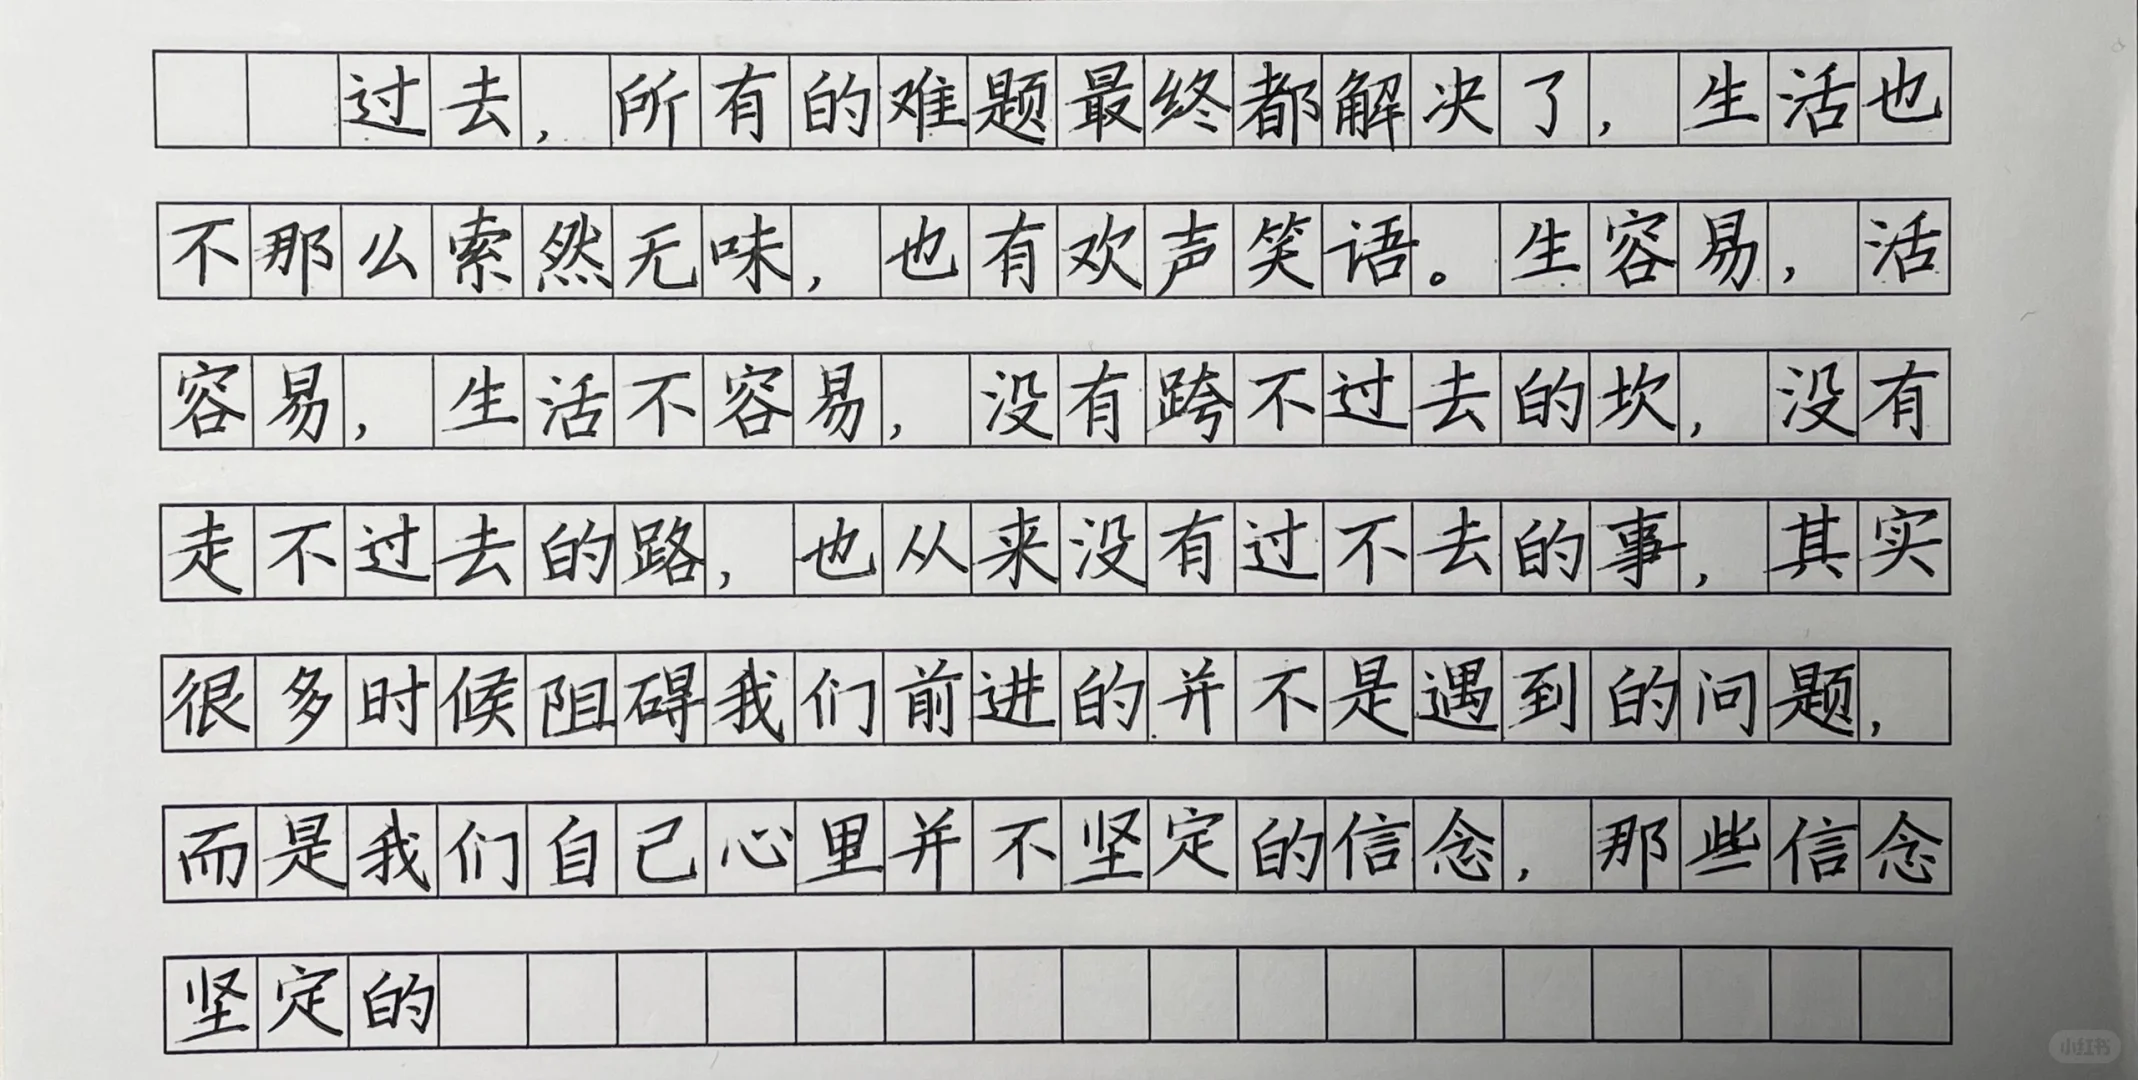 过去，所有的难题最终都解决了，生活也
不那么索然无味，也有欢声笑语。生容易，活
容易，生活不容易，没有跨不过去的坎，没有
走不过去的路，也从来没有过不去的事，其实
很多时候阻碍我们前进的并不是遇到的问题，
而是我们自己心里并不坚定的信念，那些信念
坚定的
小红书